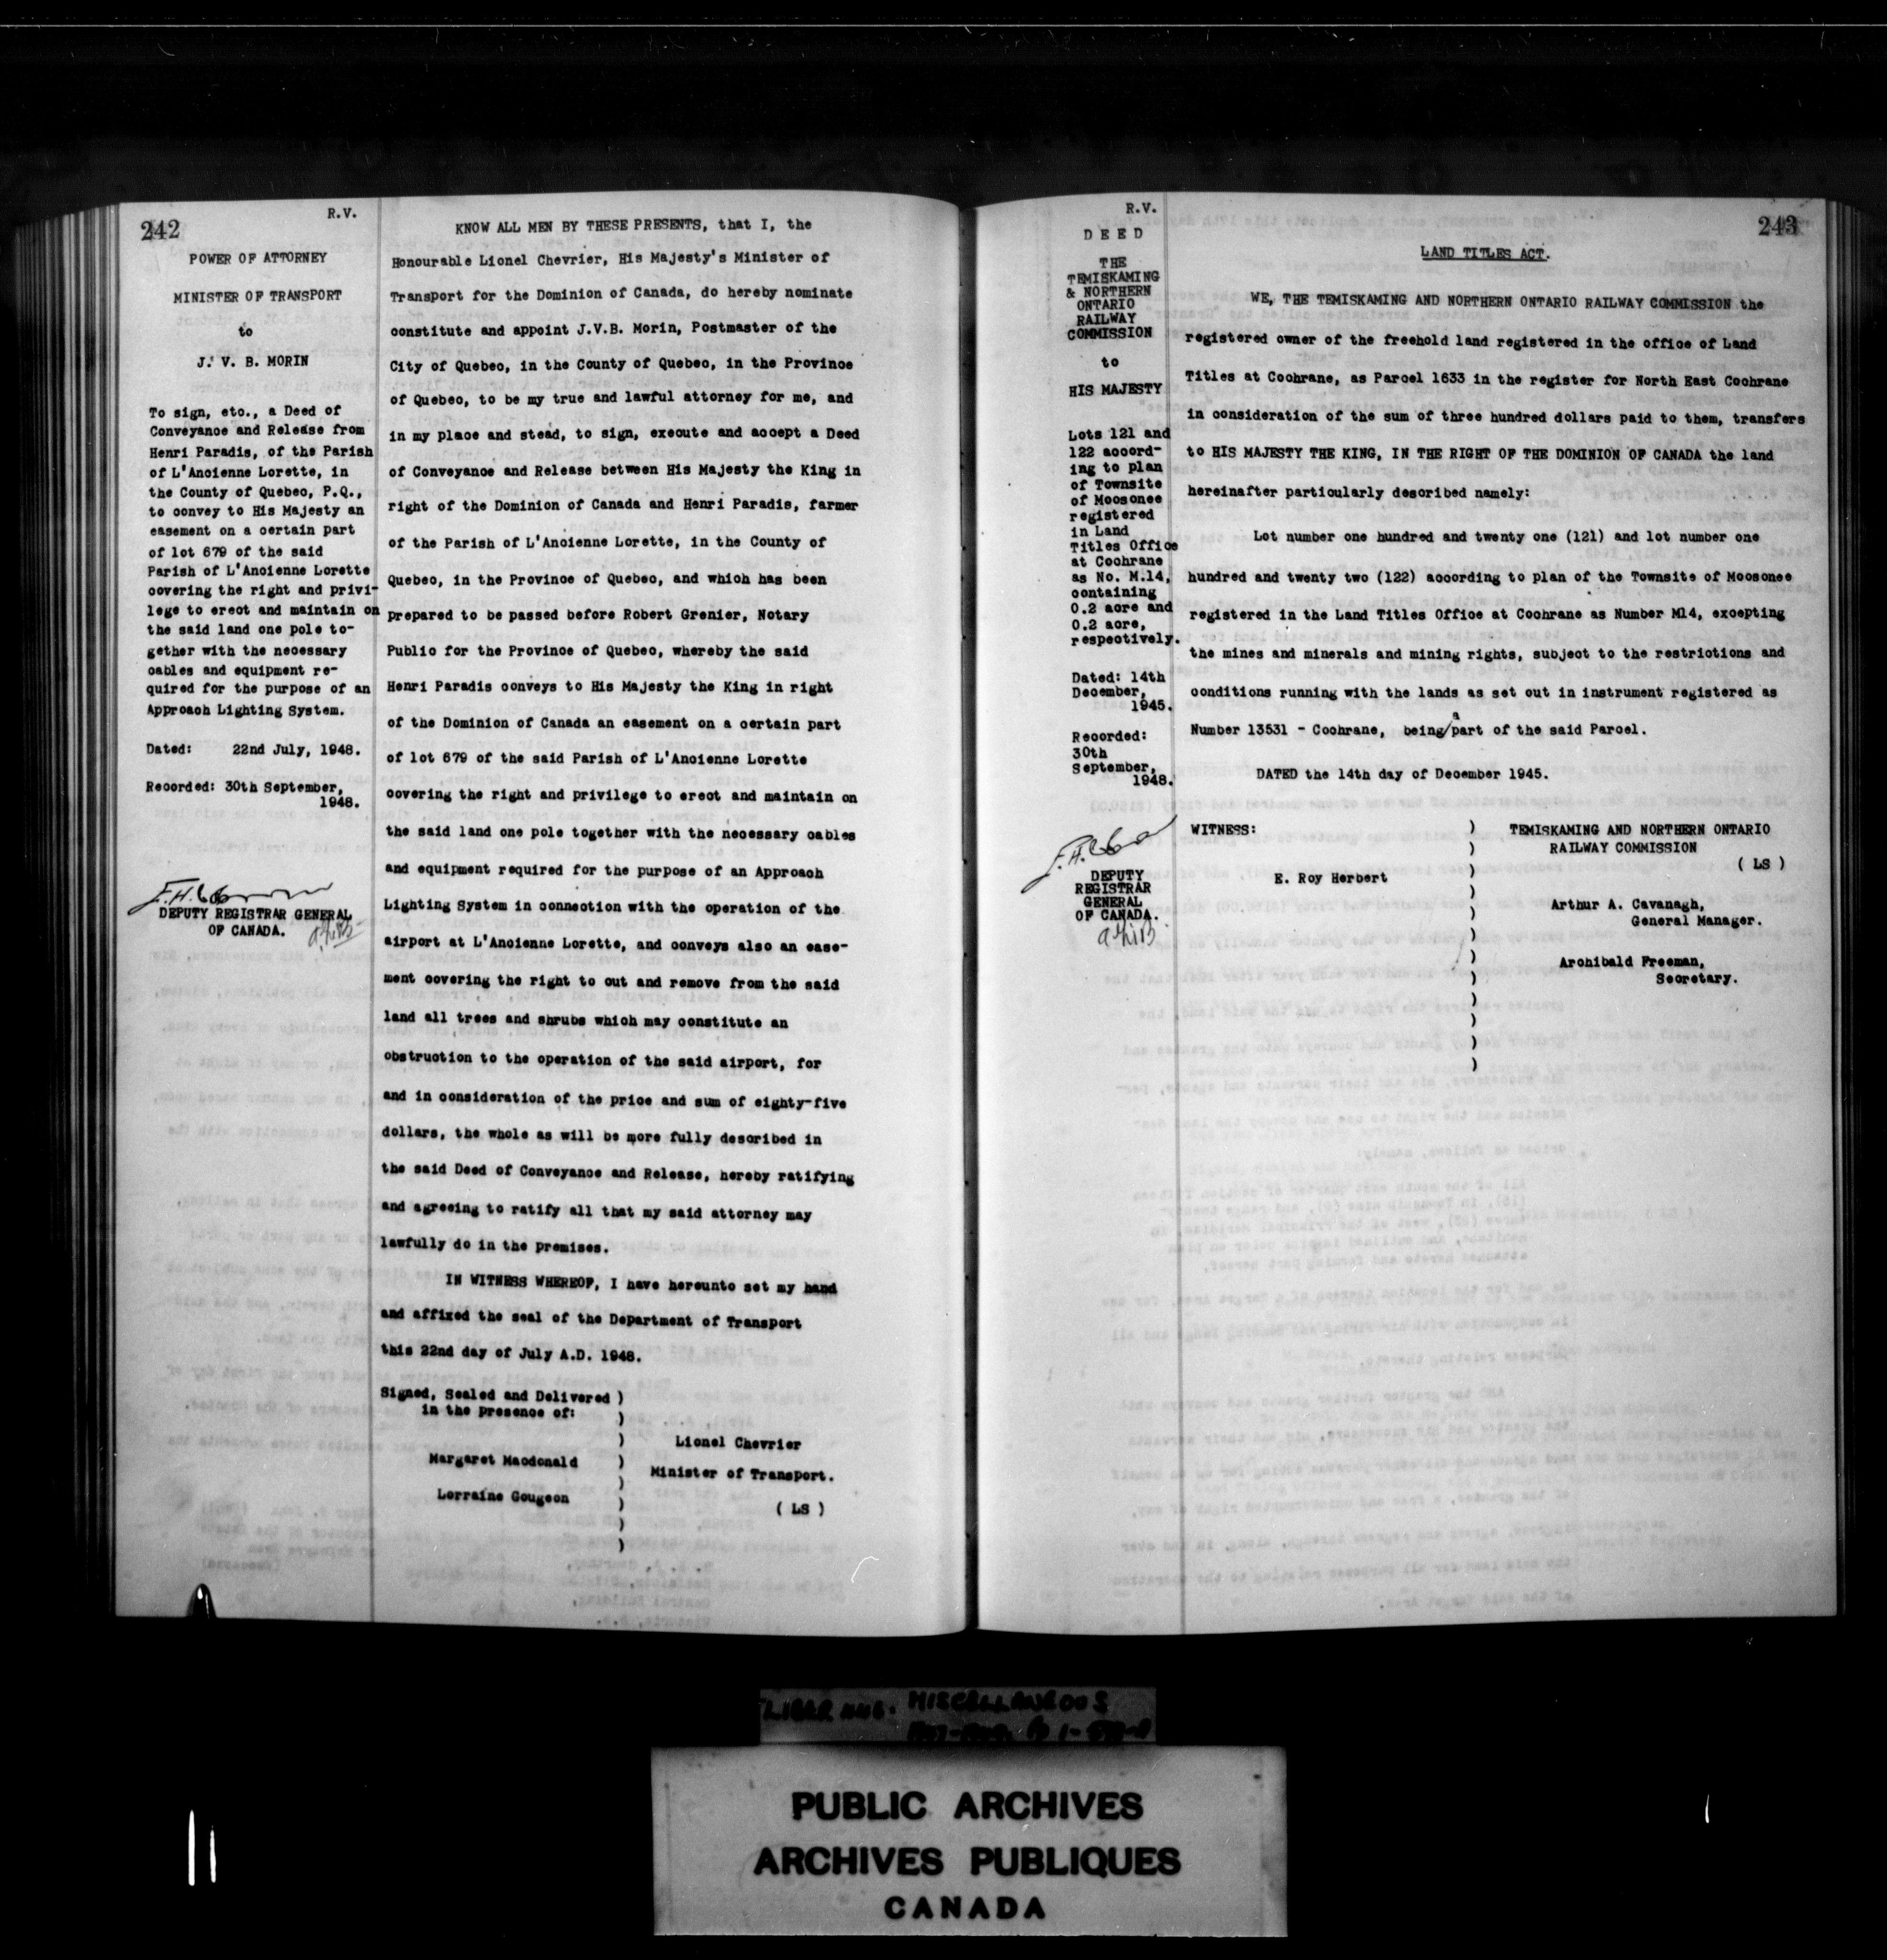 242
R.V.
POWER OF ATTORNEY
MINISTER OF TRANSPORT
to
J. V. B. MORIN
To sign, etc., a Deed of
Conveyance and Release from
Henri Paradis, of the Parish
of L'Ancienne Lorette, in
the County of Quebec, P.Q.,
to convey to His Majesty an
easement on a certain part
of lot 679 of the said
Parish of L'Ancienne Lorette
covering the right and privi-
lege to erect and maintain on
the said land one pole to-
gether with the necessary
cables and equipment re-
quired for the purpose of an
Approach Lighting System.
Dated: 22nd July, 1948.
Recorded: 30th September,
1948.
DEPUTY REGISTRAR GENERAL
OF CANADA.
KNOW ALL MEN BY THESE PRESENTS, that I, the
Honourable Lionel Chevrier, His Majesty's Minister of
Transport for the Dominion of Canada, do hereby nominate
constitute and appoint J.V.B. Morin, Postmaster of the
City of Quebec, in the County of Quebec, in the Province
of Quebec, to be my true and lawful attorney for me, and
in my place and stead, to sign, execute and accept a Deed
of Conveyance and Release between His Majesty the King in
right of the Dominion of Canada and Henri Paradis, farmer
of the Parish of L'Ancienne Lorette, in the County of
Quebec, in the Province of Quebec, and which has been
prepared to be passed before Robert Grenier, Notary
Public for the Province of Quebec, whereby the said
Henri Paradis conveys to His Majesty the King in right
of the Dominion of Canada an easement on a certain part
of lot 679 of the said Parish of L'Ancienne Lorette
covering the right and privilege to erect and maintain on
the said land one pole together with the necessary cables
and equipment required for the purpose of an Approach
Lighting System in connection with the operation of the
airport at L'Ancienne Lorette, and conveys also an ease-
ment covering the right to cut and remove from the said
land all trees and shrubs which may constitute an
obstruction to the operation of the said airport, for
and in consideration of the price and sum of eighty-five
dollars, the whole as will be more fully described in
the said Deed of Conveyance and Release, hereby ratifying
and agreeing to ratify all that my said attorney may
lawfully do in the premises.
IN WITNESS WHEREOF, I have hereunto set my hand
and affixed the seal of the Department of Transport
this 22nd day of July A.D. 1948.
Signed, Sealed and Delivered )
in the presence of: )
) Lionel Chevrier
Margaret Macdonald )
) Minister of Transport.
Lorraine Gougeon )
( LS )
)
)
R.V.
243
DEED
THE
TEMISKAMING
& NORTHERN
ONTARIO
RAILWAY
COMMISSION
to
HIS MAJESTY
Lots 121 and
122 accord-
ing to plan
of Townsite
of Moosonee
registered
in Land
Titles Office
at Cochrane
as No. M.14,
containing
0.2 acre and
0.2 acre,
respectively.
Dated: 14th
December,
1945.
Recorded:
30th
September,
1948.
DEPUTY
REGISTRAR
GENERAL
OF CANADA.
LAND TITLES ACT.
WE, THE TEMISKAMING AND NORTHERN ONTARIO RAILWAY COMMISSION the
registered owner of the freehold land registered in the office of Land
Titles at Cochrane, as Parcel 1633 in the register for North East Cochrane
in consideration of the sum of three hundred dollars paid to them, transfers
to HIS MAJESTY THE KING, IN THE RIGHT OF THE DOMINION OF CANADA the land
hereinafter particularly described namely:
Lot number one hundred and twenty one (121) and lot number one
hundred and twenty two (122) according to plan of the Townsite of Moosonee
registered in the Land Titles Office at Cochrane as Number M14, excepting
the mines and minerals and mining rights, subject to the restrictions and
conditions running with the lands as set out in instrument registered as
Number 13531 - Cochrane, being/a part of the said Parcel.
DATED the 14th day of December 1945.
WITNESS: ) TEMISKAMING AND NORTHERN ONTARIO
) RAILWAY COMMISSION
( LS )
E. Roy Herbert )
) Arthur A. Cavanagh,
) General Manager.
)
) Archibald Freeman,
) Secretary.
)
)
)
)
MISCELLANEOUS
PUBLIC ARCHIVES
ARCHIVES PUBLIQUES
CANADA